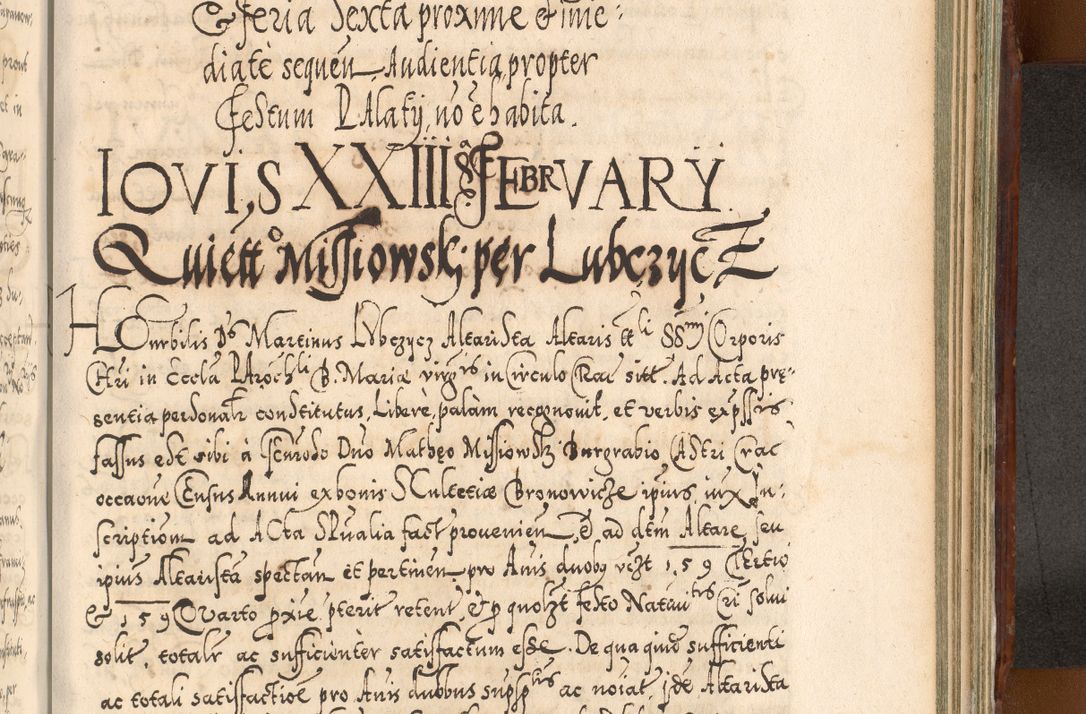 & feria Sexta proxime & ime
diatè sequen Audientia propter
festum P. Alatÿ, nō ē habita.
IOVIS XXIII FEBRVARY
Quiett° Missiowsk: per Lubczyc
Honrbilis Ds Martinus Lubczycz Altarista Altaris tt li SSmi Corporis
Chri in Eccla PArochli B. Mariæ virgis in Circulo Rac sitt. Ad Acta prę
sentia personalr constitutus, Liberè, palam recognovit, et verbis expssis
fassus est sibi à Genroso Dno Mathęo Missiowski Burgrabio CAstri Crac
occaone Census Annui ex bonis SCultetiæ Bronowicze ipius iux In:
scriptiom ad ACta SRualia fact provenien, & ad dtm Altare, seu
ipius Altaristã spectan et pertinen pro Anis duoby vczt 159 Tertio
& 159 Quarto pxie pterit retent, et p quolzt festo Nativitis Cri solui
solit, totalr ac sufficienter satisfactum esse. De qua quidē sufficienti
ac totali satisfactioē pro Anis duobus supsptis ac noiat, jdē Altarista